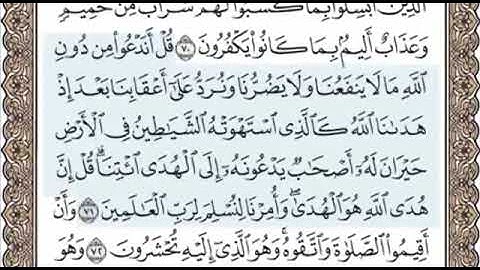 ٱلَّذِينَ أُبْسِلُوا۟ بِمَا كَسَبُوا۟ لَهُمْ شَرَابٌ مِّنْ حَمِيمٍ
وَعَذَابٌ أَلِيمٌۢ بِمَا كَانُوا۟ يَكْفُرُونَ ٧٠ قُلْ أَنَدْعُوا۟ مِن دُونِ
ٱللَّهِ مَا لَا يَنفَعُنَا وَلَا يَضُرُّنَا وَنُرَدُّ عَلَىٰٓ أَعْقَابِنَا بَعْدَ إِذْ
هَدَىٰنَا ٱللَّهُ كَٱلَّذِى ٱسْتَهْوَتْهُ ٱلشَّيَـٰطِينُ فِى ٱلْأَرْضِ
حَيْرَانَ لَهُۥٓ أَصْحَـٰبٌ يَدْعُونَهُۥٓ إِلَى ٱلْهُدَى ٱئْتِنَا ۗ قُلْ إِنَّ
هُدَى ٱللَّهِ هُوَ ٱلْهُدَىٰ ۖ وَأُمِرْنَا لِنُسْلِمَ لِرَبِّ ٱلْعَـٰلَمِينَ ٧١ وَأَنْ
أَقِيمُوا۟ ٱلصَّلَوٰةَ وَٱتَّقُوهُ ۚ وَهُوَ ٱلَّذِىٓ إِلَيْهِ تُحْشَرُونَ ٧٢ وَهُوَ